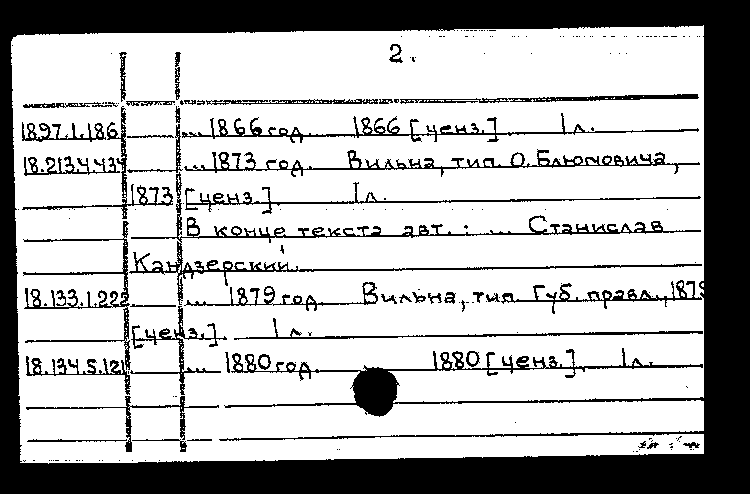 2.
18.97.1.186 ... 1866 год. 1866 [ценз.] 1 л.
18.213.4.434 ... 1873 год. Вильна, тип. О. Блюмовича,
1873 [ценз.]. 1 л.
В конце текста авт.: ... Станислав
Кандзерский.
18.133.1.222 ... 1879 год. Вильна, тип. Губ. правл., 1879
[ценз.]. 1 л.
18.134.5.121 ... 1880 год. 1880 [ценз.], 1 л.